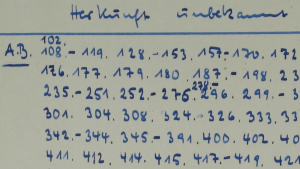 Herkunft unbekannt
102.
A.B. 108.-119. 128.-153. 157-170. 172
176. 177. 179. 180. 187.-198. 23
235.-251. 252.-275. 279. 296. 299.-3
301. 304. 308. 324. 326. 333. 33
342.-344. 345.-391. 400. 402. 40
411. 412. 414. 415. 417.-419. 421